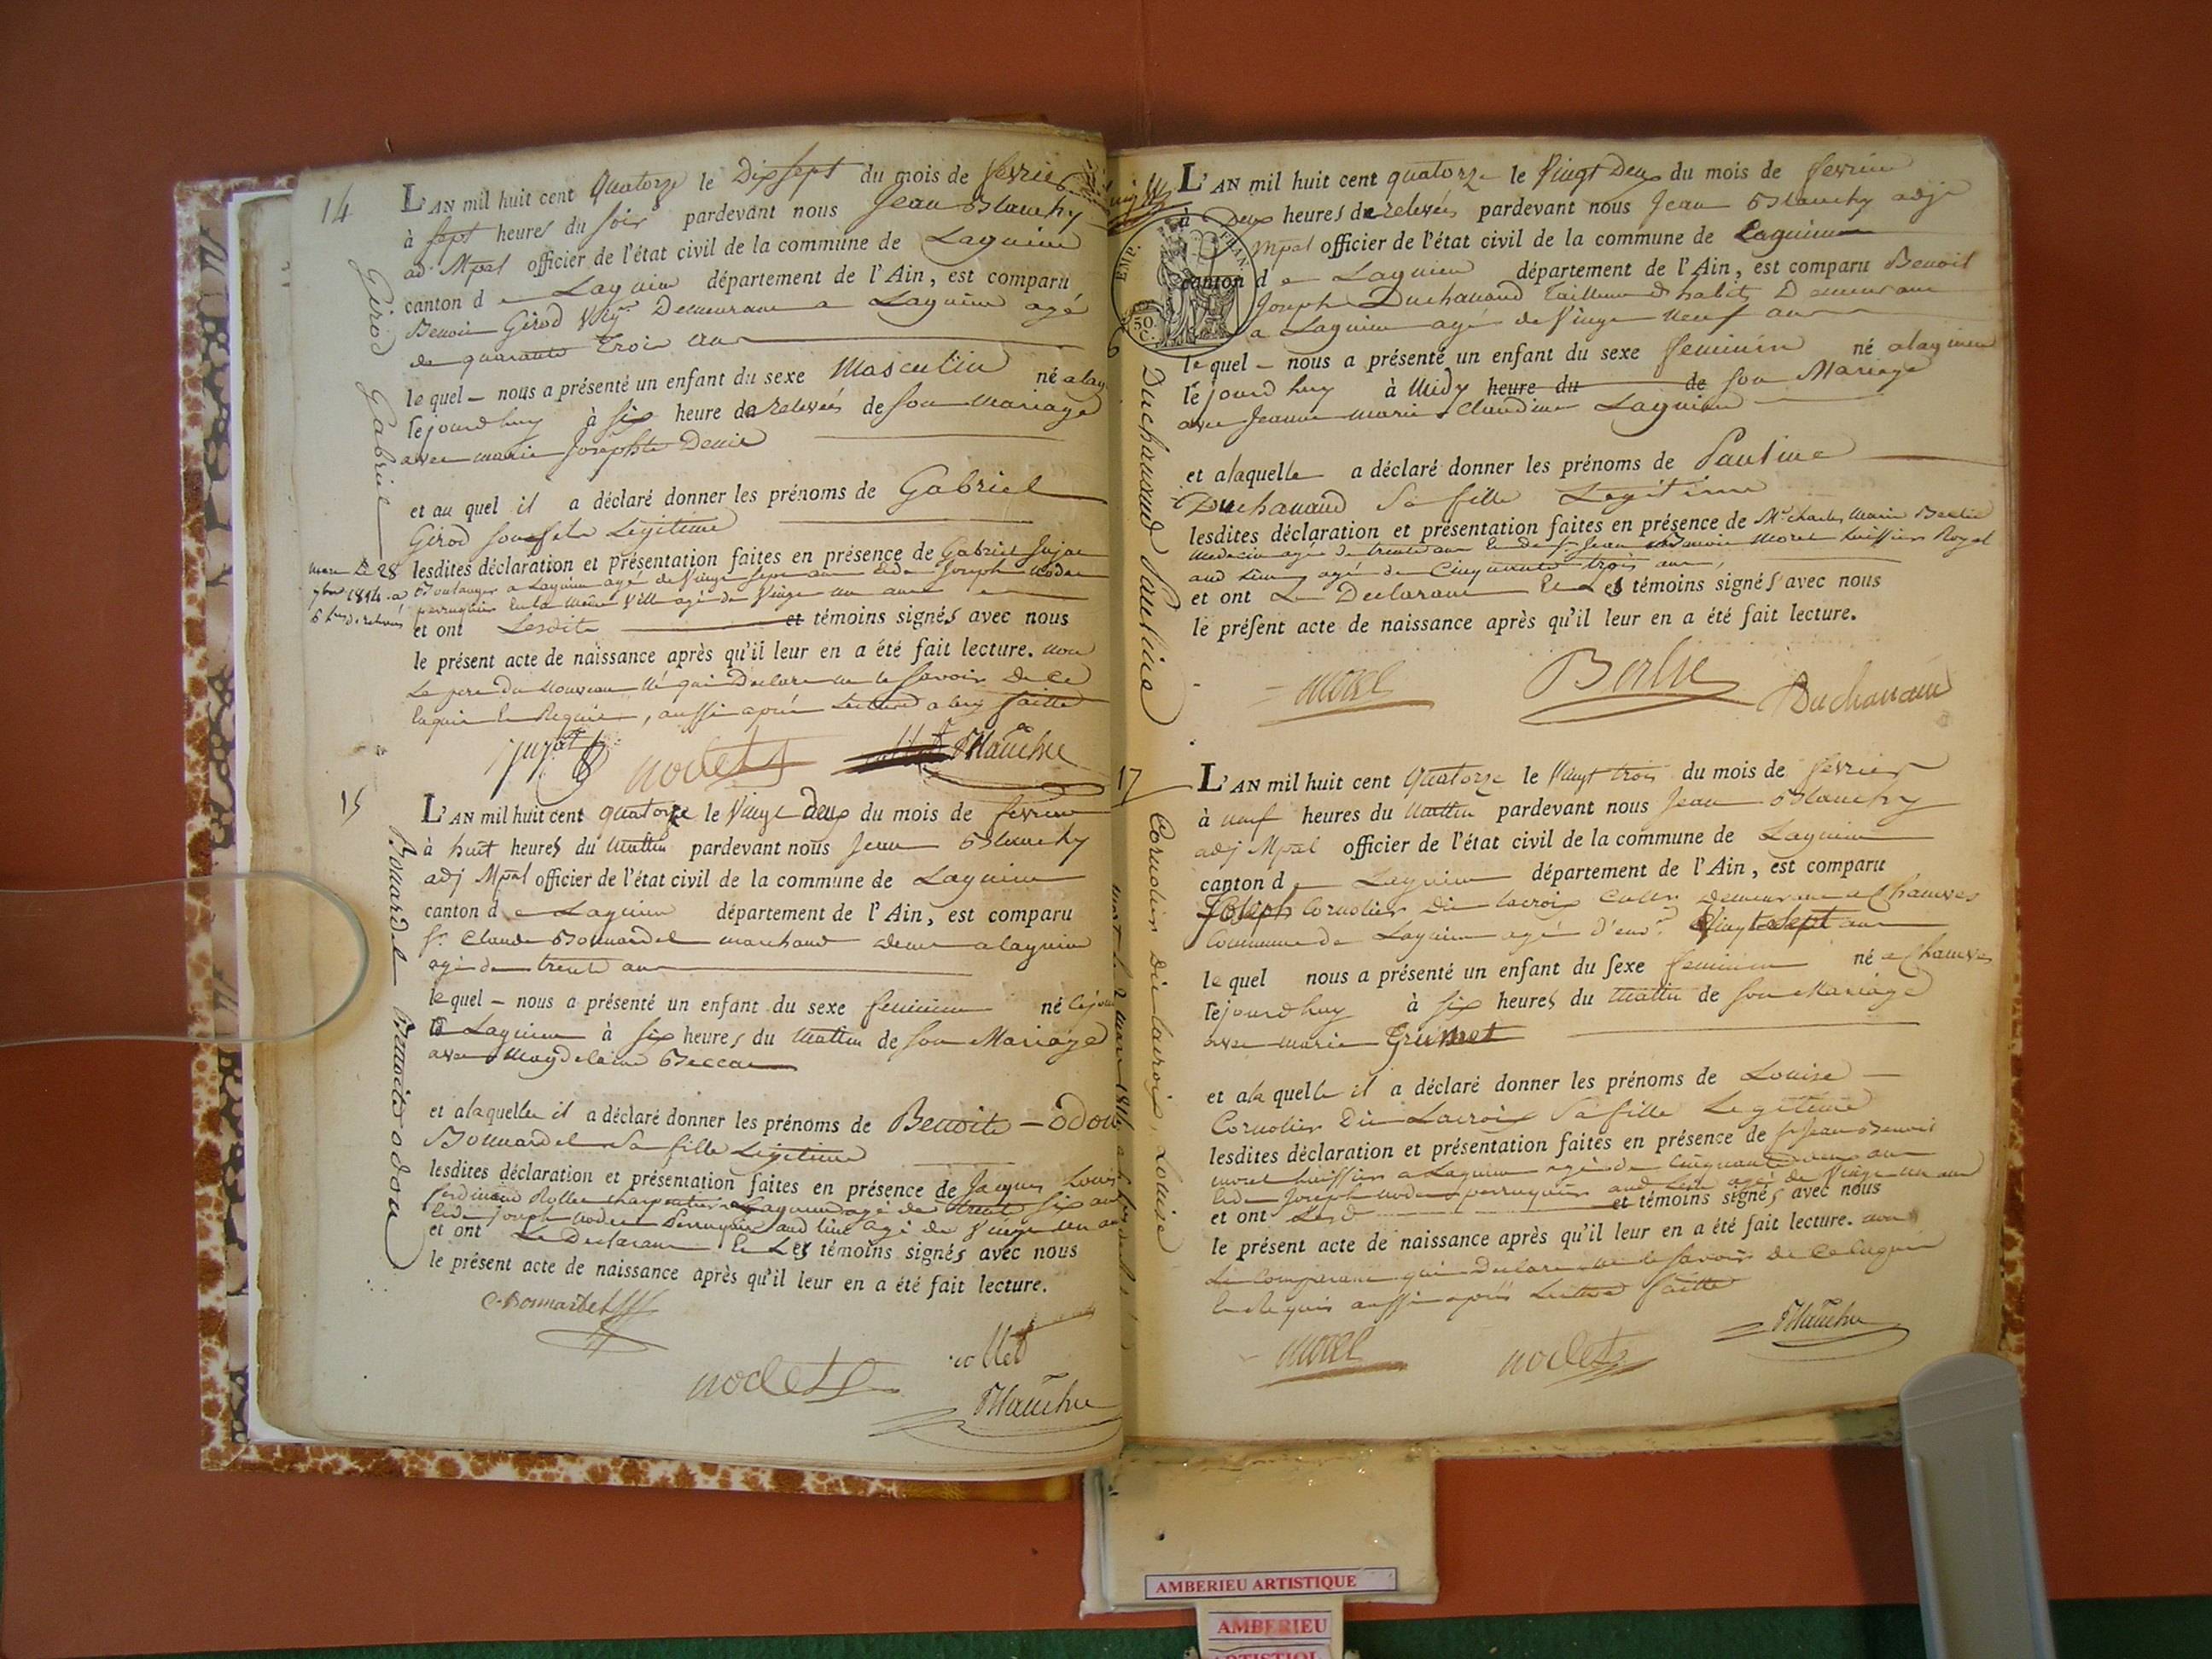 14
L'AN mil huit cent quatorze le Dix sept du mois de fevrier
à sept heures du soir pardevant nous Jean Blanchy
adj Mpal officier de l'état civil de la commune de Lagnieu
canton de Lagnieu département de l'Ain, est comparu
Benoit Girod Demeurant a Lagnieu agé
de quarante trois ans
lequel nous a présenté un enfant du sexe Masculin né a lag
cejourdhuy à six heure de relevée de son mariage
avec marie Josephte Denis
et au quel il a déclaré donner les prénoms de Gabriel
Girod son fils Légitime
lesdites déclaration et présentation faites en présence de Gabriel Jujat
Boulanger a Lagnieu agé de Vingt sept ans et de Joseph Nodet
perruquier en la même Ville agé de Vingt un ans
et ont Lesdits et témoins signés avec nous
le présent acte de naissance après qu'il leur en a été fait lecture. non
Le pere du nouveau né qui a Declaré ne le savoir De ce
enquis et Requis, aussi après Lecture a luy faitte
Girod Gabriel
mort Le 28
7bre 1814 a
6 h du relevée
Jujat
nodet
Blanchy
15
L'AN mil huit cent quatorze le Vingt deux du mois de fevrier
à huit heures du Mattin pardevant nous Jean Blanchy
adj Mpal officier de l'état civil de la commune de Lagnieu
canton de Lagnieu département de l'Ain, est comparu
Sr Claude Bonnardel marchand demt a lagnieu
agé de trente ans
lequel nous a présenté un enfant du sexe feminin né cejour
a Lagnieu à six heures du Mattin de son Mariage
avec Magdelaine Beccat
et a laquelle il a déclaré donner les prénoms de Benoite – odon
Bonnardel sa fille Légitime
lesdites déclaration et présentation faites en présence de Jacques Louis
ferdinand Rollet charpentier a Lagnieu agé de trente six ans
et de Joseph Nodet Perruquier aud lieu agé de Vingt un ans
et ont Le Declarant et Les témoins signés avec nous
le présent acte de naissance après qu'il leur en a été fait lecture.
Bonnardel Benoite odon
C. Bonnardel
nodet
Rollet
Blanchy
EMP. FRAN.
50. C.
L'AN mil huit cent quatorze le Vingt Deux du mois de fevrier
à Deux heures de relevées pardevant nous Jean Blanchy adj
Mpal officier de l'état civil de la commune de Lagnieu
canton de Lagnieu département de l'Ain, est comparu Benoit
Joseph Duchavand Tailleur d'habits Demeurant
a Lagnieu agé de Vingt neuf ans
lequel nous a présenté un enfant du sexe feminin né a lagnieu
cejourdhuy à Midy heure du de son Mariage
avec Jeanne marie Claudine Lagnieu
et a laquelle a déclaré donner les prénoms de Pauline
Duchavand sa fille Legitime
lesdites déclaration et présentation faites en présence de Mr charles Marie Berlie
medecin agé de trente ans et de Sr Jean Benoit Morel huissier Royal
aud Lieu agé de Cinquante trois ans,
et ont Le Declarant et Les témoins signés avec nous
le présent acte de naissance après qu'il leur en a été fait lecture.
Duchavand Pauline
morel
Berlie
Duchavand
17
L'AN mil huit cent quatorze le Vingt trois du mois de fevrier
à neuf heures du Mattin pardevant nous Jean Blanchy
adj Mpal officier de l'état civil de la commune de Lagnieu
canton de Lagnieu département de l'Ain, est comparu
Joseph Cornolier Dit lacroix Demeurant a Chanves
Commune de Lagnieu agé d'env. Vingt sept ans
lequel nous a présenté un enfant du sexe feminin né a Chanves
cejourdhuy à six heures du Mattin de son Mariage
avec marie Grumet
et a la quelle il a déclaré donner les prénoms de Louise
Cornolier Dit Lacroix sa fille Legitime
lesdites déclaration et présentation faites en présence de Sr Jean Benoit
morel huissier a Lagnieu agé de Cinquante ans
et de Joseph Nodet perruquier aud Lieu agé de Vingt un ans
et ont Lesd et témoins signés avec nous
le présent acte de naissance après qu'il leur en a été fait lecture. non
Le Comparant qui a Declaré ne le savoir de ce enquis
et Requis aussi après Lecture faitte
Cornolier Dit lacroix, Louise
morel
nodet
Blanchy
AMBERIEU ARTISTIQUE
AMBERIEU